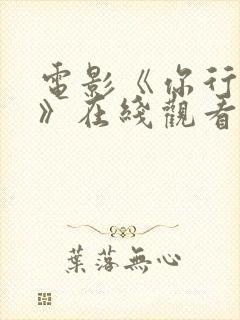 電影《你行
》在綫觀看
葉落無心